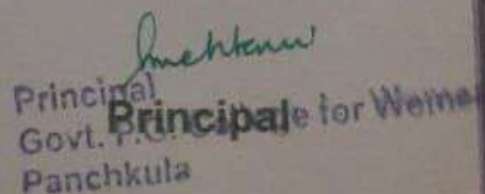 Principal
Principal
Govt. P.G. for Women
Panchkula